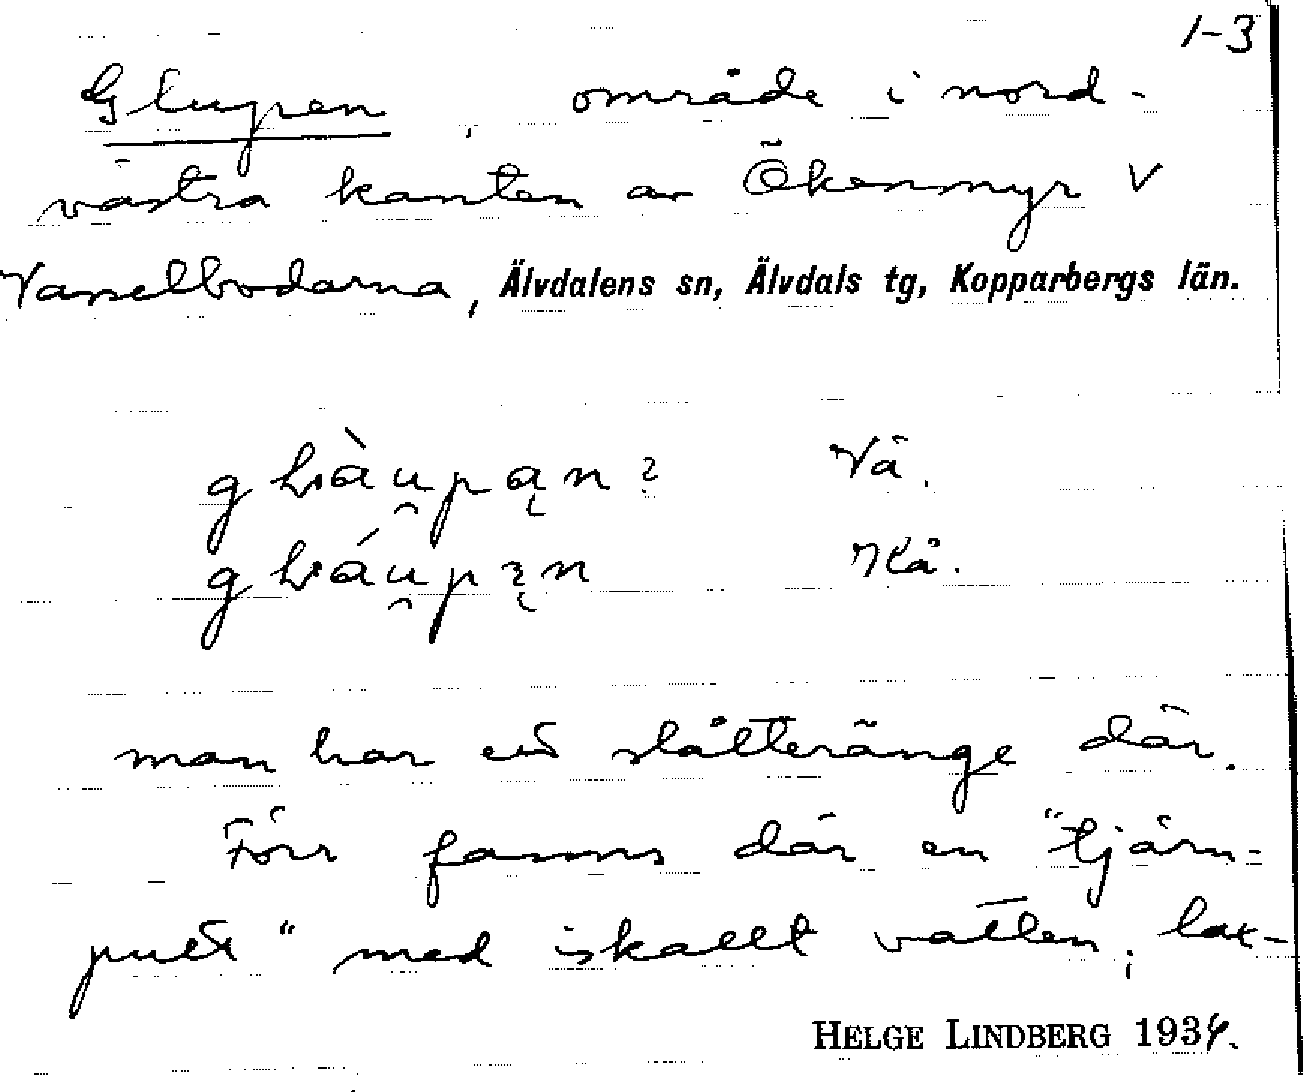 1-3
Glupen, område i nord-
västra kanten av Ökenmyr V
Vasselbodarna, Älvdalens sn, Älvdals tg, Kopparbergs län.
Vä.
Kå.
man har ett slåtteränge där.
Förr fanns där en "tjärn-
putt" med iskallt vatten;
HELGE LINDBERG 1934.